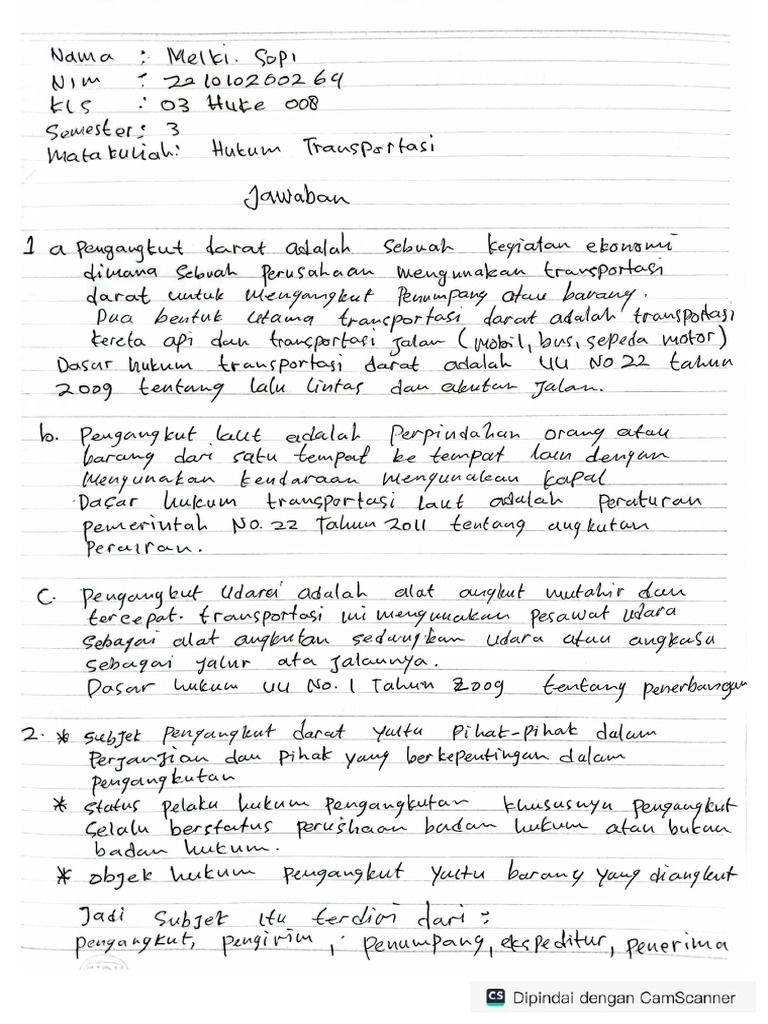 Nama : Melki. Sopi
NIM : 221010200269
Kls : 03 Huke 008
Semester: 3
Matakuliah: Hukum Transportasi
Jawaban
1 a Pengangkut darat adalah sebuah kegiatan ekonomi
dimana sebuah perusahaan mengunakan transportasi
darat untuk mengangkut Penumpang atau barang.
Dua bentuk utama transportasi darat adalah transportasi
kereta api dan transportasi jalan (mobil, bus, sepeda motor)
Dasar hukum transportasi darat adalah UU NO 22 tahun
2009 tentang lalu lintas dan akutan jalan.
b. Pengangkut laut adalah Perpindahan orang atau
barang dari satu tempat ke tempat lain dengan
mengunakan kendaraan mengunakan kapal
Dasar hukum transportasi laut adalah Peraturan
pemerintah No. 22 Tahun 2011 tentang angkutan
Perairan.
C. Pengangkut Udara adalah alat angkut mutahir dan
tercepat. transportasi ini mengunakan pesawat udara
sebagai alat angkutan sedangkan udara atau angkasa
sebagai jalur ata jalannya.
Dasar hukum UU No. 1 Tahun 2009 tentang penerbangan
2. * Subjek pengangkut darat yaitu pihat-pihak dalam
Perjanjian dan pihak yang berkepentingan dalam
pengangkutan
* status pelaku hukum pengangkutan khususnya pengangkut
Selalu berstatus perushaan badan hukum atau bukan
badan hukum.
* objek hukum pengangkut yaitu barang yang diangkut
Jadi Subjek itu terdiri dari :
pengangkut, pengirim, penumpang, ekspeditur, penerima
CS Dipindai dengan CamScanner